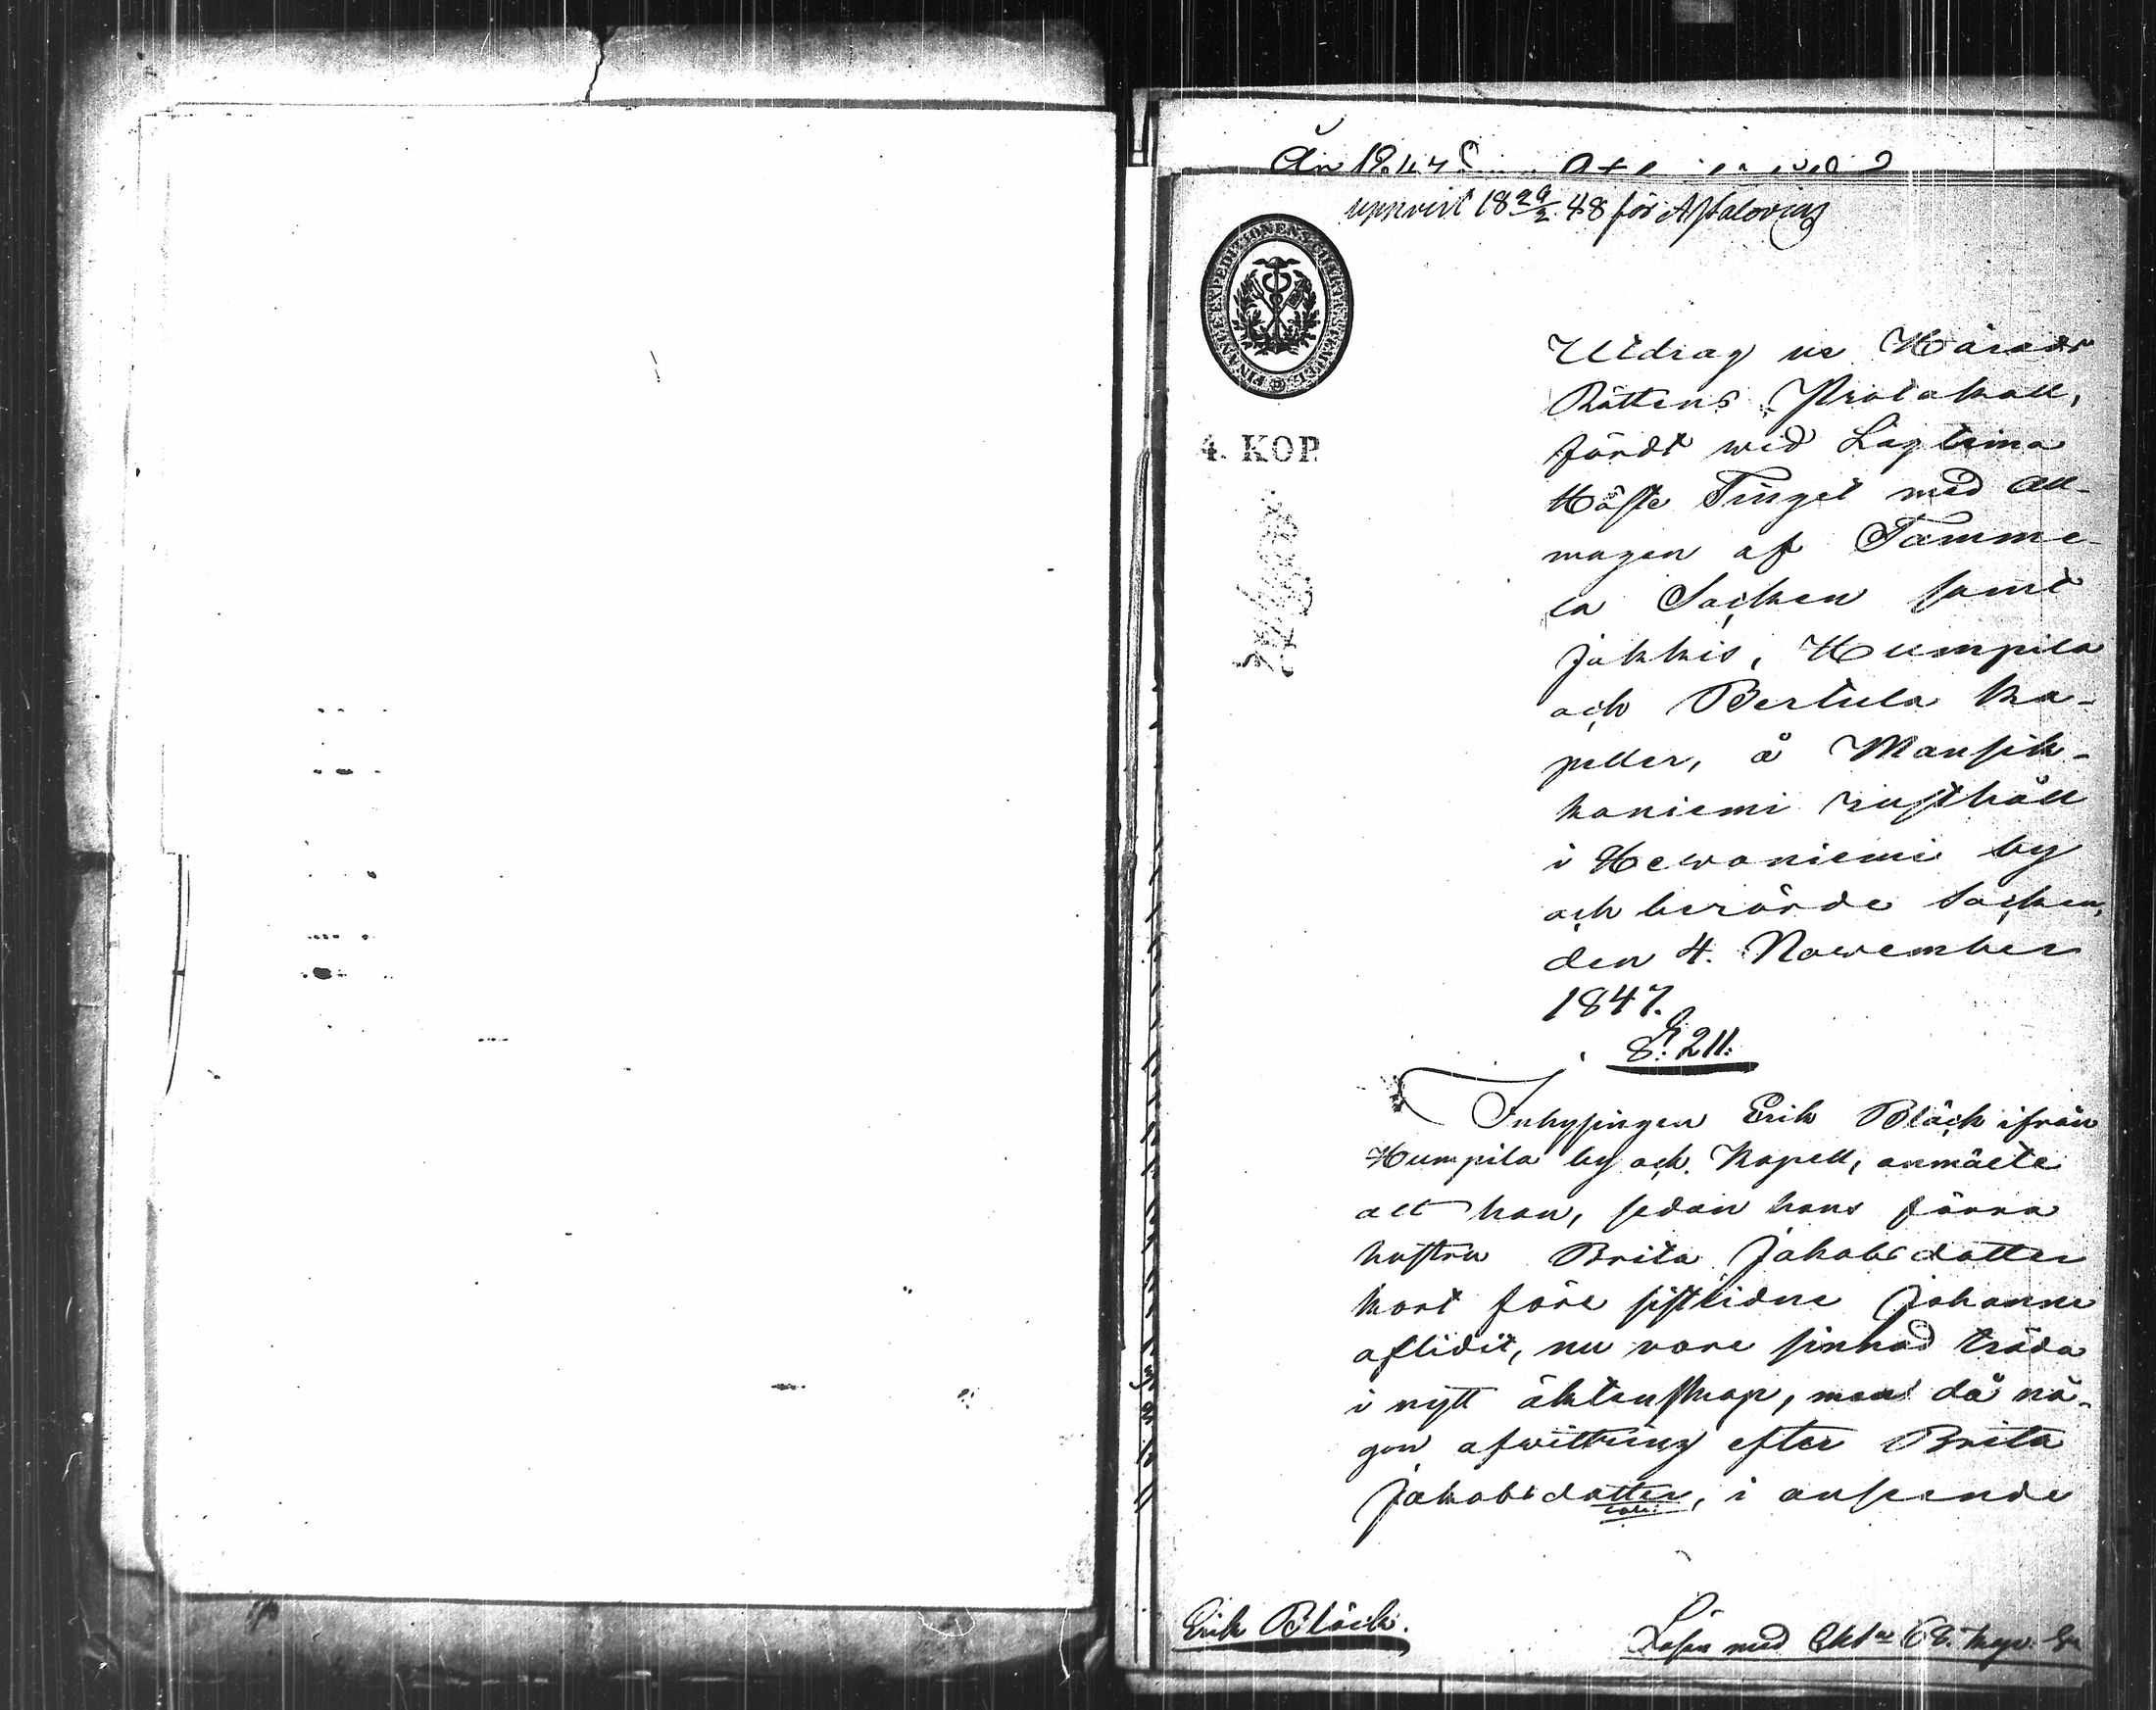 År 1847
uppvist 18 29/2 48 för Afkalovius
FINANCE EXPEDITIONENS
4. KOP.
Utdrag ur Härads
Rättens Protokoll,
fördt wid Lagtima
Höste Tinget med All-
mogen af Tamme-
la Socken samt
Jokkis, Humpila
och Bertula ka-
peller, å Mansik-
kaniemi rusthåll
i Hewoniemi by
och berörde Socken,
den 4. November
1847.
§. 211.
Inhysingen Erik Bläck ifrån
Humpila by och Kapell, anmälte
att han, sedan hans förra
hustru Brita Jakobsdotter
kort före sistlidne Johanne
aflidit, nu vore sinnad träda
i nytt äktenskap, men då nå-
gon afwittring efter Brita
Jakobsdotter, i anseende
Erik Bläck.
Lösen med 68. kop. Sr